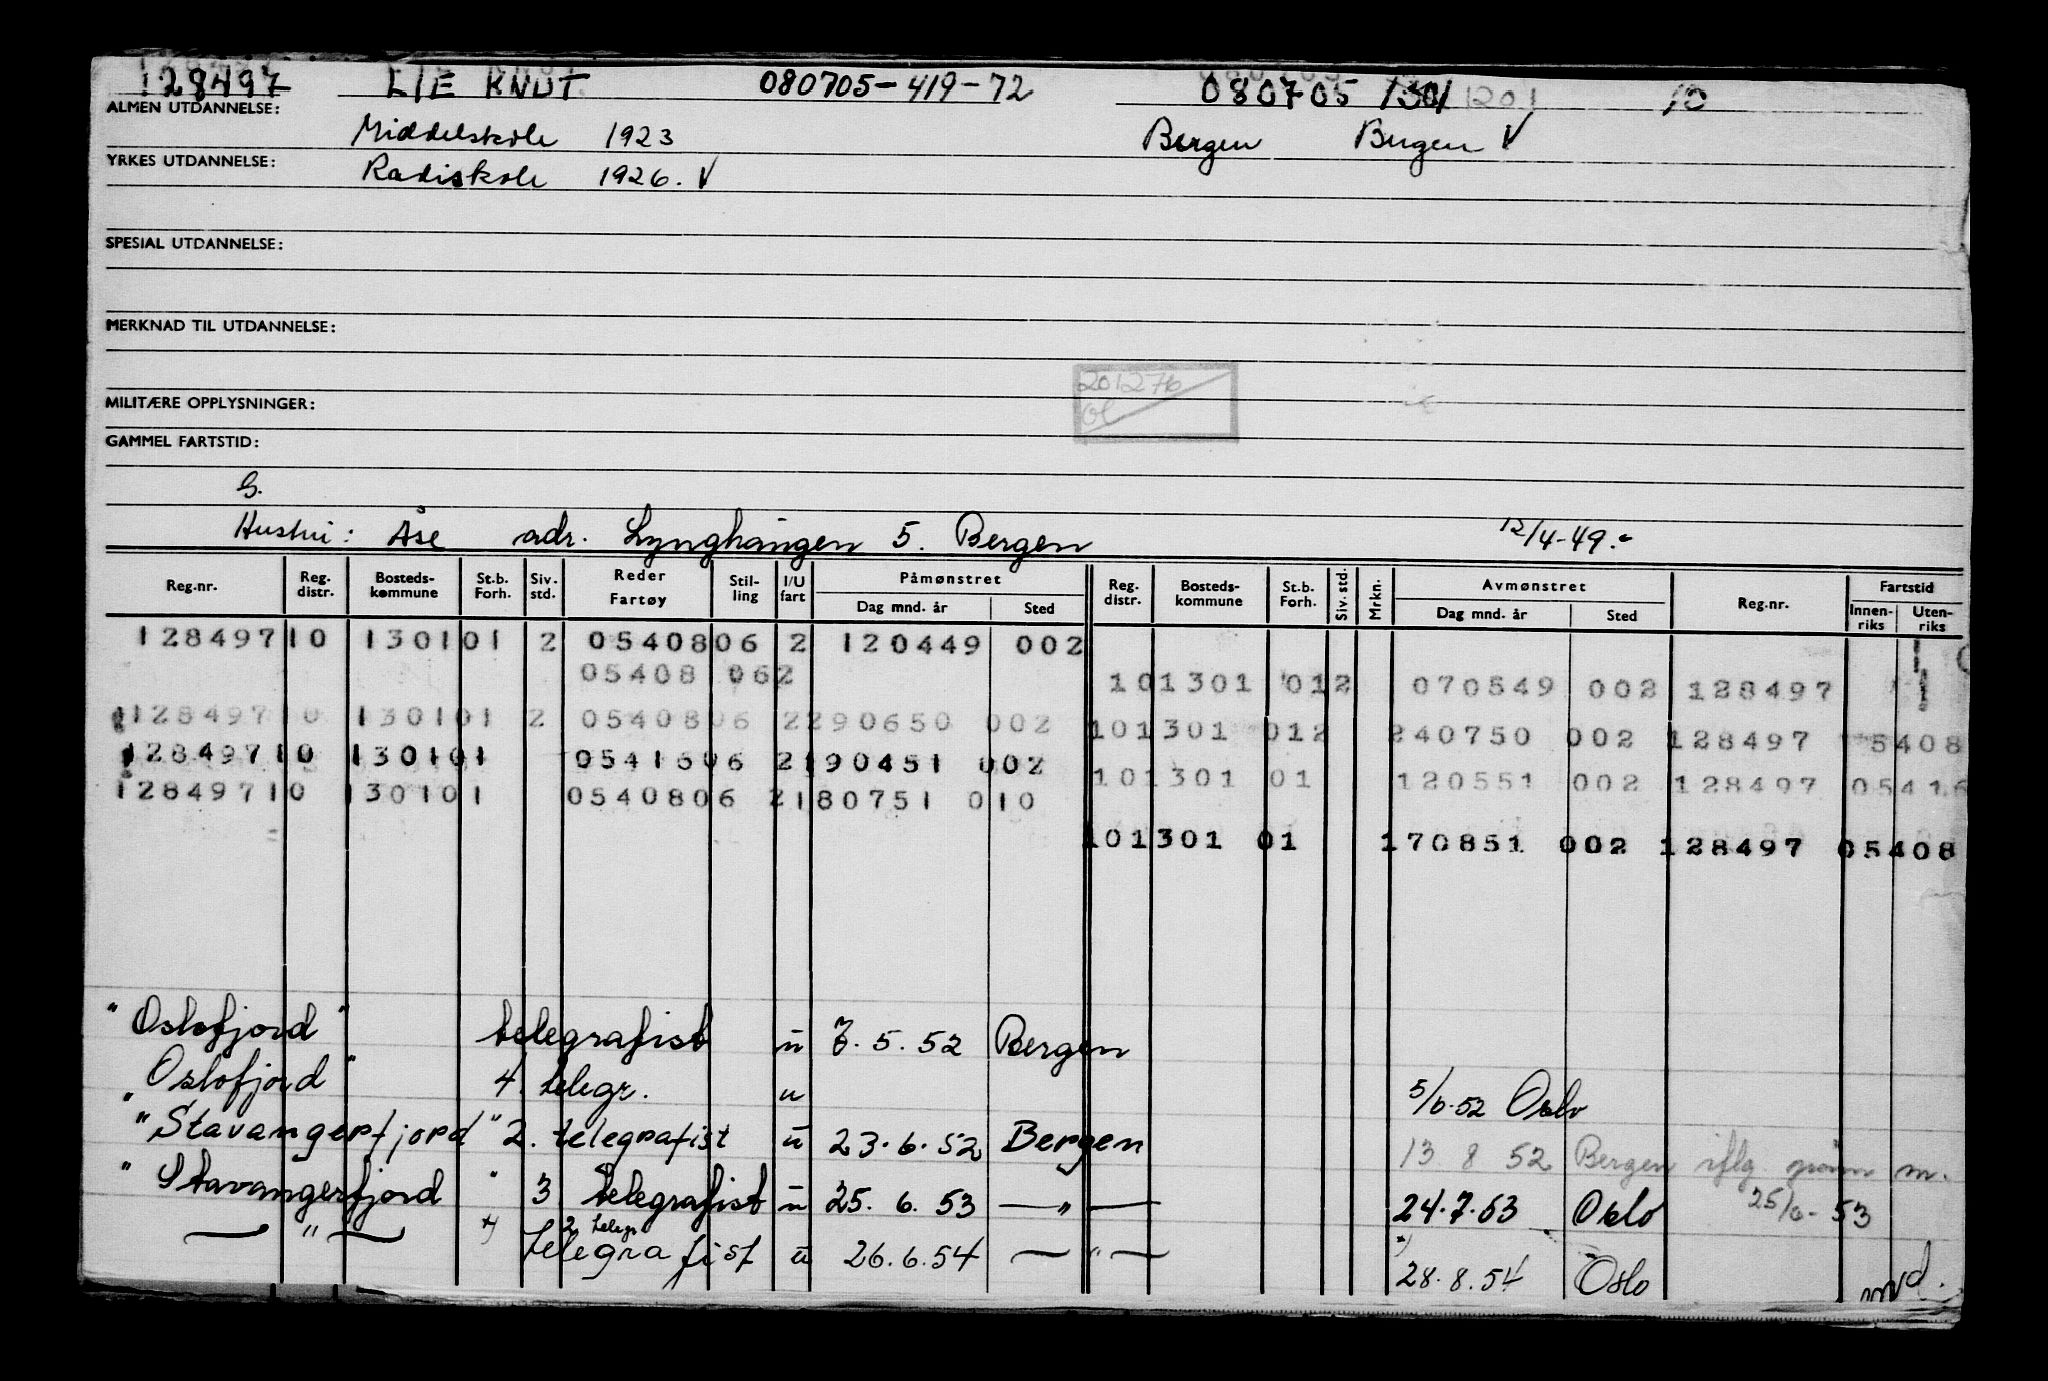 128497 LIE KNUT 080705-419-72 080705 1301 1201 10
ALMEN UTDANNELSE: Middelskole 1923 Bergen Bergen V
YRKES UTDANNELSE: Radiskole 1926. V
SPESIAL UTDANNELSE:
MERKNAD TIL UTDANNELSE:
201276
MILITÆRE OPPLYSNINGER:
GAMMEL FARTSTID:
G.
Hustru: Åse adr. Lynghaugen 5. Bergen 12/4-49.-
Reg.nr. Reg. distr. Bosteds-kommune St.b. Forh. Siv. std. Reder Fartøy Stil-ling I/U fart Påmønstret Dag mnd. år Sted Reg. distr. Bosteds-kommune St.b. Forh. Siv. std. Mrkn. Avmønstret Dag mnd. år Sted Reg.nr. Fartstid Innen-riks Uten-riks
128497 10 1301 01 2 05408 06 2 120449 002
05408 062 10 1301 012 070549 002 128497
128497 10 1301 01 2 05408 06 2 290650 002 10 1301 012 240750 002 128497 5408
128497 10 1301 01 05416 06 2 190451 002 10 1301 01 120551 002 128497 05416
128497 10 1301 01 05408 06 2 180751 010
10 1301 01 170851 002 128497 05408
"Oslofjord" telegrafist u 7.5.52 Bergen
"Oslofjord" 4. telegr. u 5/6.52 Oslo
"Stavangerfjord" 2. telegrafist u 23.6.52 Bergen 13 8 52 Bergen iflg m.
"Stavangerfjord" 3 telegrafist u 25.6.53 — " — 24.7.53 Oslo 53
— " — *) 2 telegr telegrafist u 26.6.54 — " — *) 28.8.54 Oslo md.